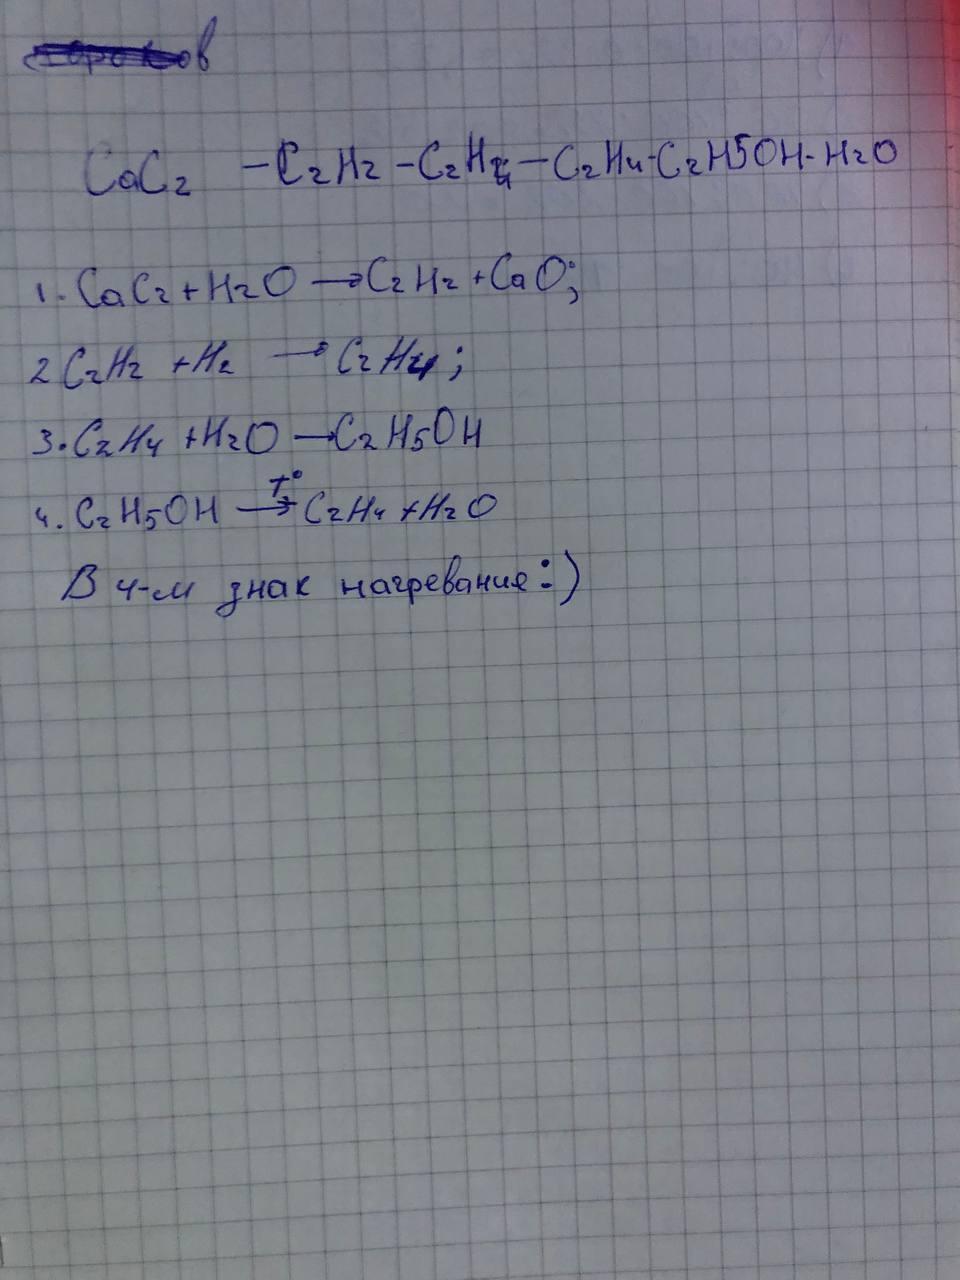 CaC2 - C2H2 - C2H4 - C2H4 - C2H5OH - H2O
1. CaC2 + H2O → C2H2 + CaO;
2 C2H2 + H2 → C2H4;
3. C2H4 + H2O → C2H5OH
4. C2H5OH T°→ C2H4 + H2O
В 4-м знак нагревание:)